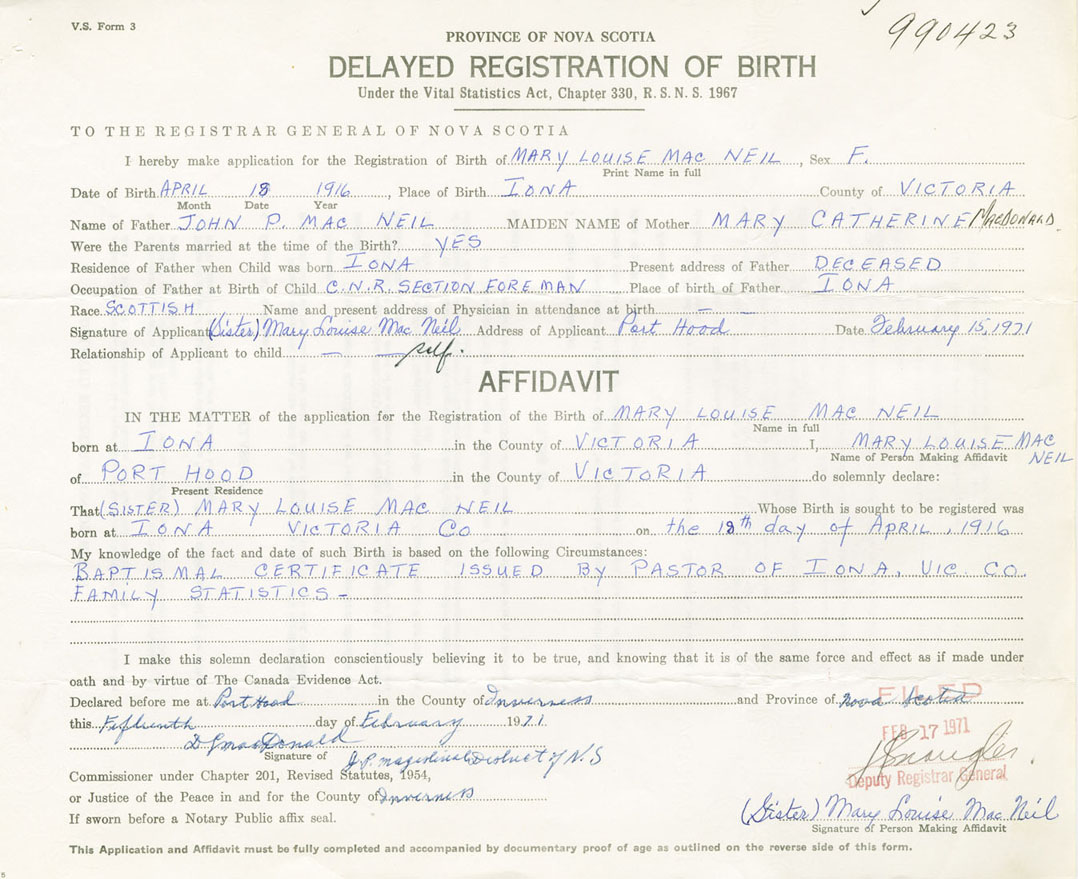 V.S. Form 3
990423
PROVINCE OF NOVA SCOTIA
DELAYED REGISTRATION OF BIRTH
Under the Vital Statistics Act, Chapter 330, R.S.N.S. 1967
TO THE REGISTRAR GENERAL OF NOVA SCOTIA
I hereby make application for the Registration of Birth of MARY LOUISE MAC NEIL, Sex F.
Print Name in full
Date of Birth APRIL 18 1916, Place of Birth IONA County of VICTORIA
Month Date Year
Name of Father JOHN P. MAC NEIL MAIDEN NAME of Mother MARY CATHERINE MACDONALD.
Were the Parents married at the time of the Birth? YES
Residence of Father when Child was born IONA Present address of Father DECEASED
Occupation of Father at Birth of Child C.N.R. SECTION FOREMAN Place of birth of Father IONA
Race SCOTTISH Name and present address of Physician in attendance at birth — —
Signature of Applicant (Sister) Mary Louise Mac Neil Address of Applicant Port Hood Date February 15, 1971
Relationship of Applicant to child — — self.
AFFIDAVIT
IN THE MATTER of the application for the Registration of the Birth of MARY LOUISE MAC NEIL
Name in full
born at IONA in the County of VICTORIA I, MARY LOUISE MAC NEIL
Name of Person Making Affidavit
of PORT HOOD in the County of VICTORIA do solemnly declare:
Present Residence
That (SISTER) MARY LOUISE MAC NEIL Whose Birth is sought to be registered was
born at IONA VICTORIA CO on the 18th day of APRIL, 1916
My knowledge of the fact and date of such Birth is based on the following Circumstances:
BAPTISMAL CERTIFICATE ISSUED BY PASTOR OF IONA, VIC. CO.
FAMILY STATISTICS –
I make this solemn declaration conscientiously believing it to be true, and knowing that it is of the same force and effect as if made under
oath and by virtue of The Canada Evidence Act.
Declared before me at Port Hood in the County of Inverness and Province of Nova Scotia
FILED
this Fifteenth day of February 1971.
FEB 17 1971
D MacDonald
Signature of J.P. District of N.S
Deputy Registrar General
Commissioner under Chapter 201, Revised Statutes, 1954,
or Justice of the Peace in and for the County of Inverness
(Sister) Mary Louise Mac Neil
If sworn before a Notary Public affix seal.
Signature of Person Making Affidavit
This Application and Affidavit must be fully completed and accompanied by documentary proof of age as outlined on the reverse side of this form.
5